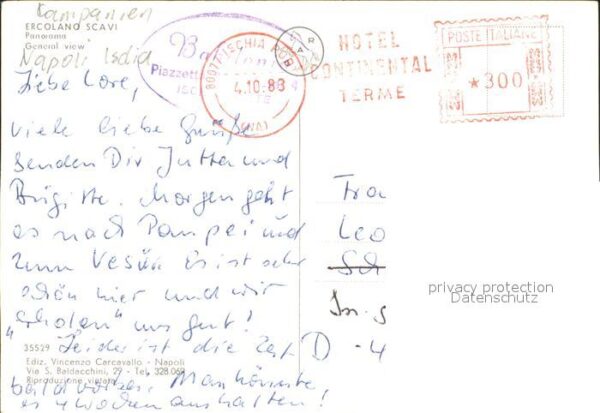 Kampanien
ERCOLANO SCAVI
Panorama
General view
Napoli Ischia
Piazzett
80077 ISCHIA POR
4.10.83
(NA)
HOTEL
CONTINENTAL
TERME
POSTE ITALIANE
★300
Liebe Lore,
viele liebe Grüße
senden Dir Jutta und
Brigitte. Morgen geht
es nach Pompei und
zum Vesuv. Es ist sehr
schön hier und wir
„erholen" uns gut!
Leider ist die Zeit
bald vorbei. Man könnte
es 4 Wochen aushalten!
Fra
Leo
D - 4
privacy protection
Datenschutz
35529
Ediz. Vincenzo Carcavallo - Napoli
Via S. Baldacchini, 29 - Tel. 328.069
Riproduzione vietata